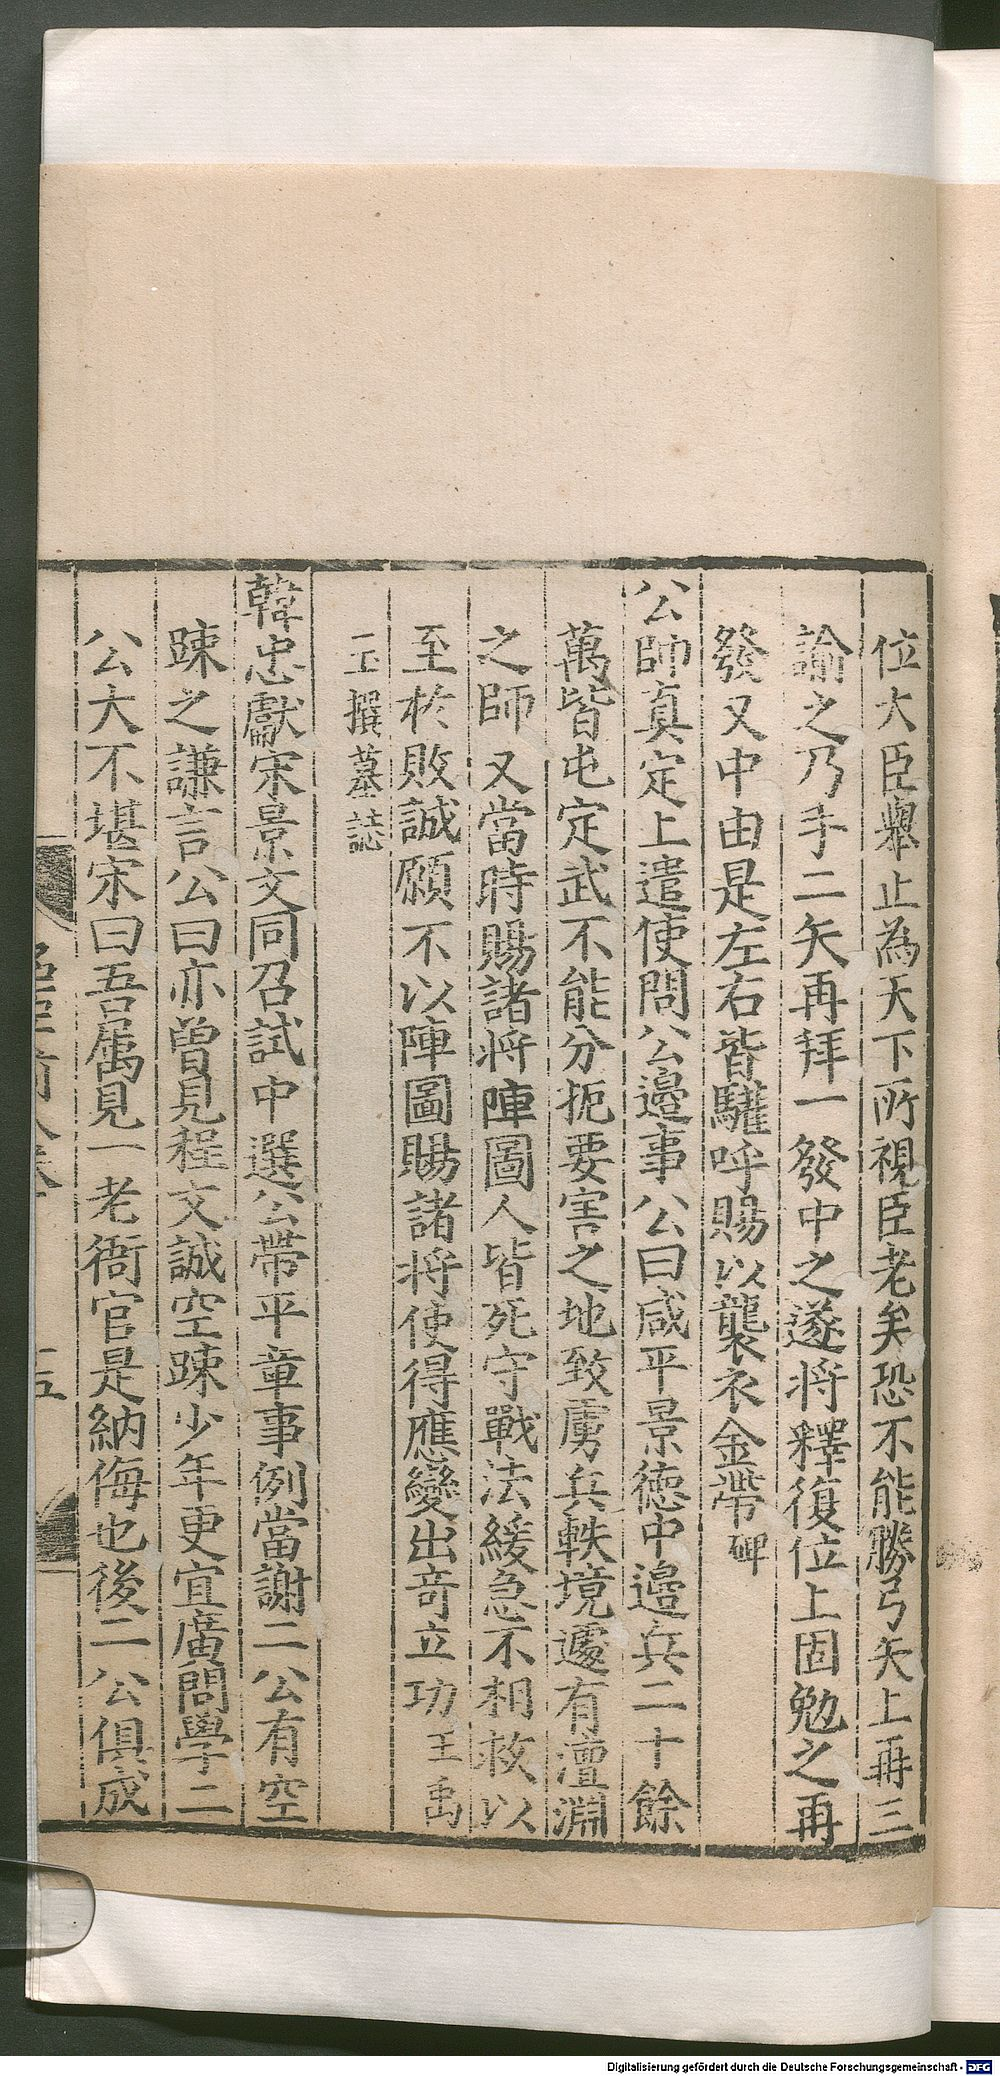 位大臣舉止為天下所視臣老矣恐不能勝弓矢上再三
諭之乃手二矢再拜一發中之遂將釋復位上固勉之再
發又中由是左右皆驩呼賜以襲衣金帶碑
公帥真定上遣使問公邊事公曰咸平景德中邊兵二十餘
萬皆屯定武不能分扼要害之地致虜兵軼境遽有澶淵
之師又當時賜諸將陣圖人皆死守戰法緩急不相救以
至於敗誠願不以陣圖賜諸將使得應變出奇立功王禹
玉撰墓誌
韓忠獻宋景文同召試中選公帶平章事例當謝二公有空
踈之謙言公曰亦曾見程文誠空踈少年更宜廣問學二
公大不堪宋曰吾属見一老衙官是納侮也後二公俱成
Digitalisierung gefördert durch die Deutsche Forschungsgemeinschaft - DFG